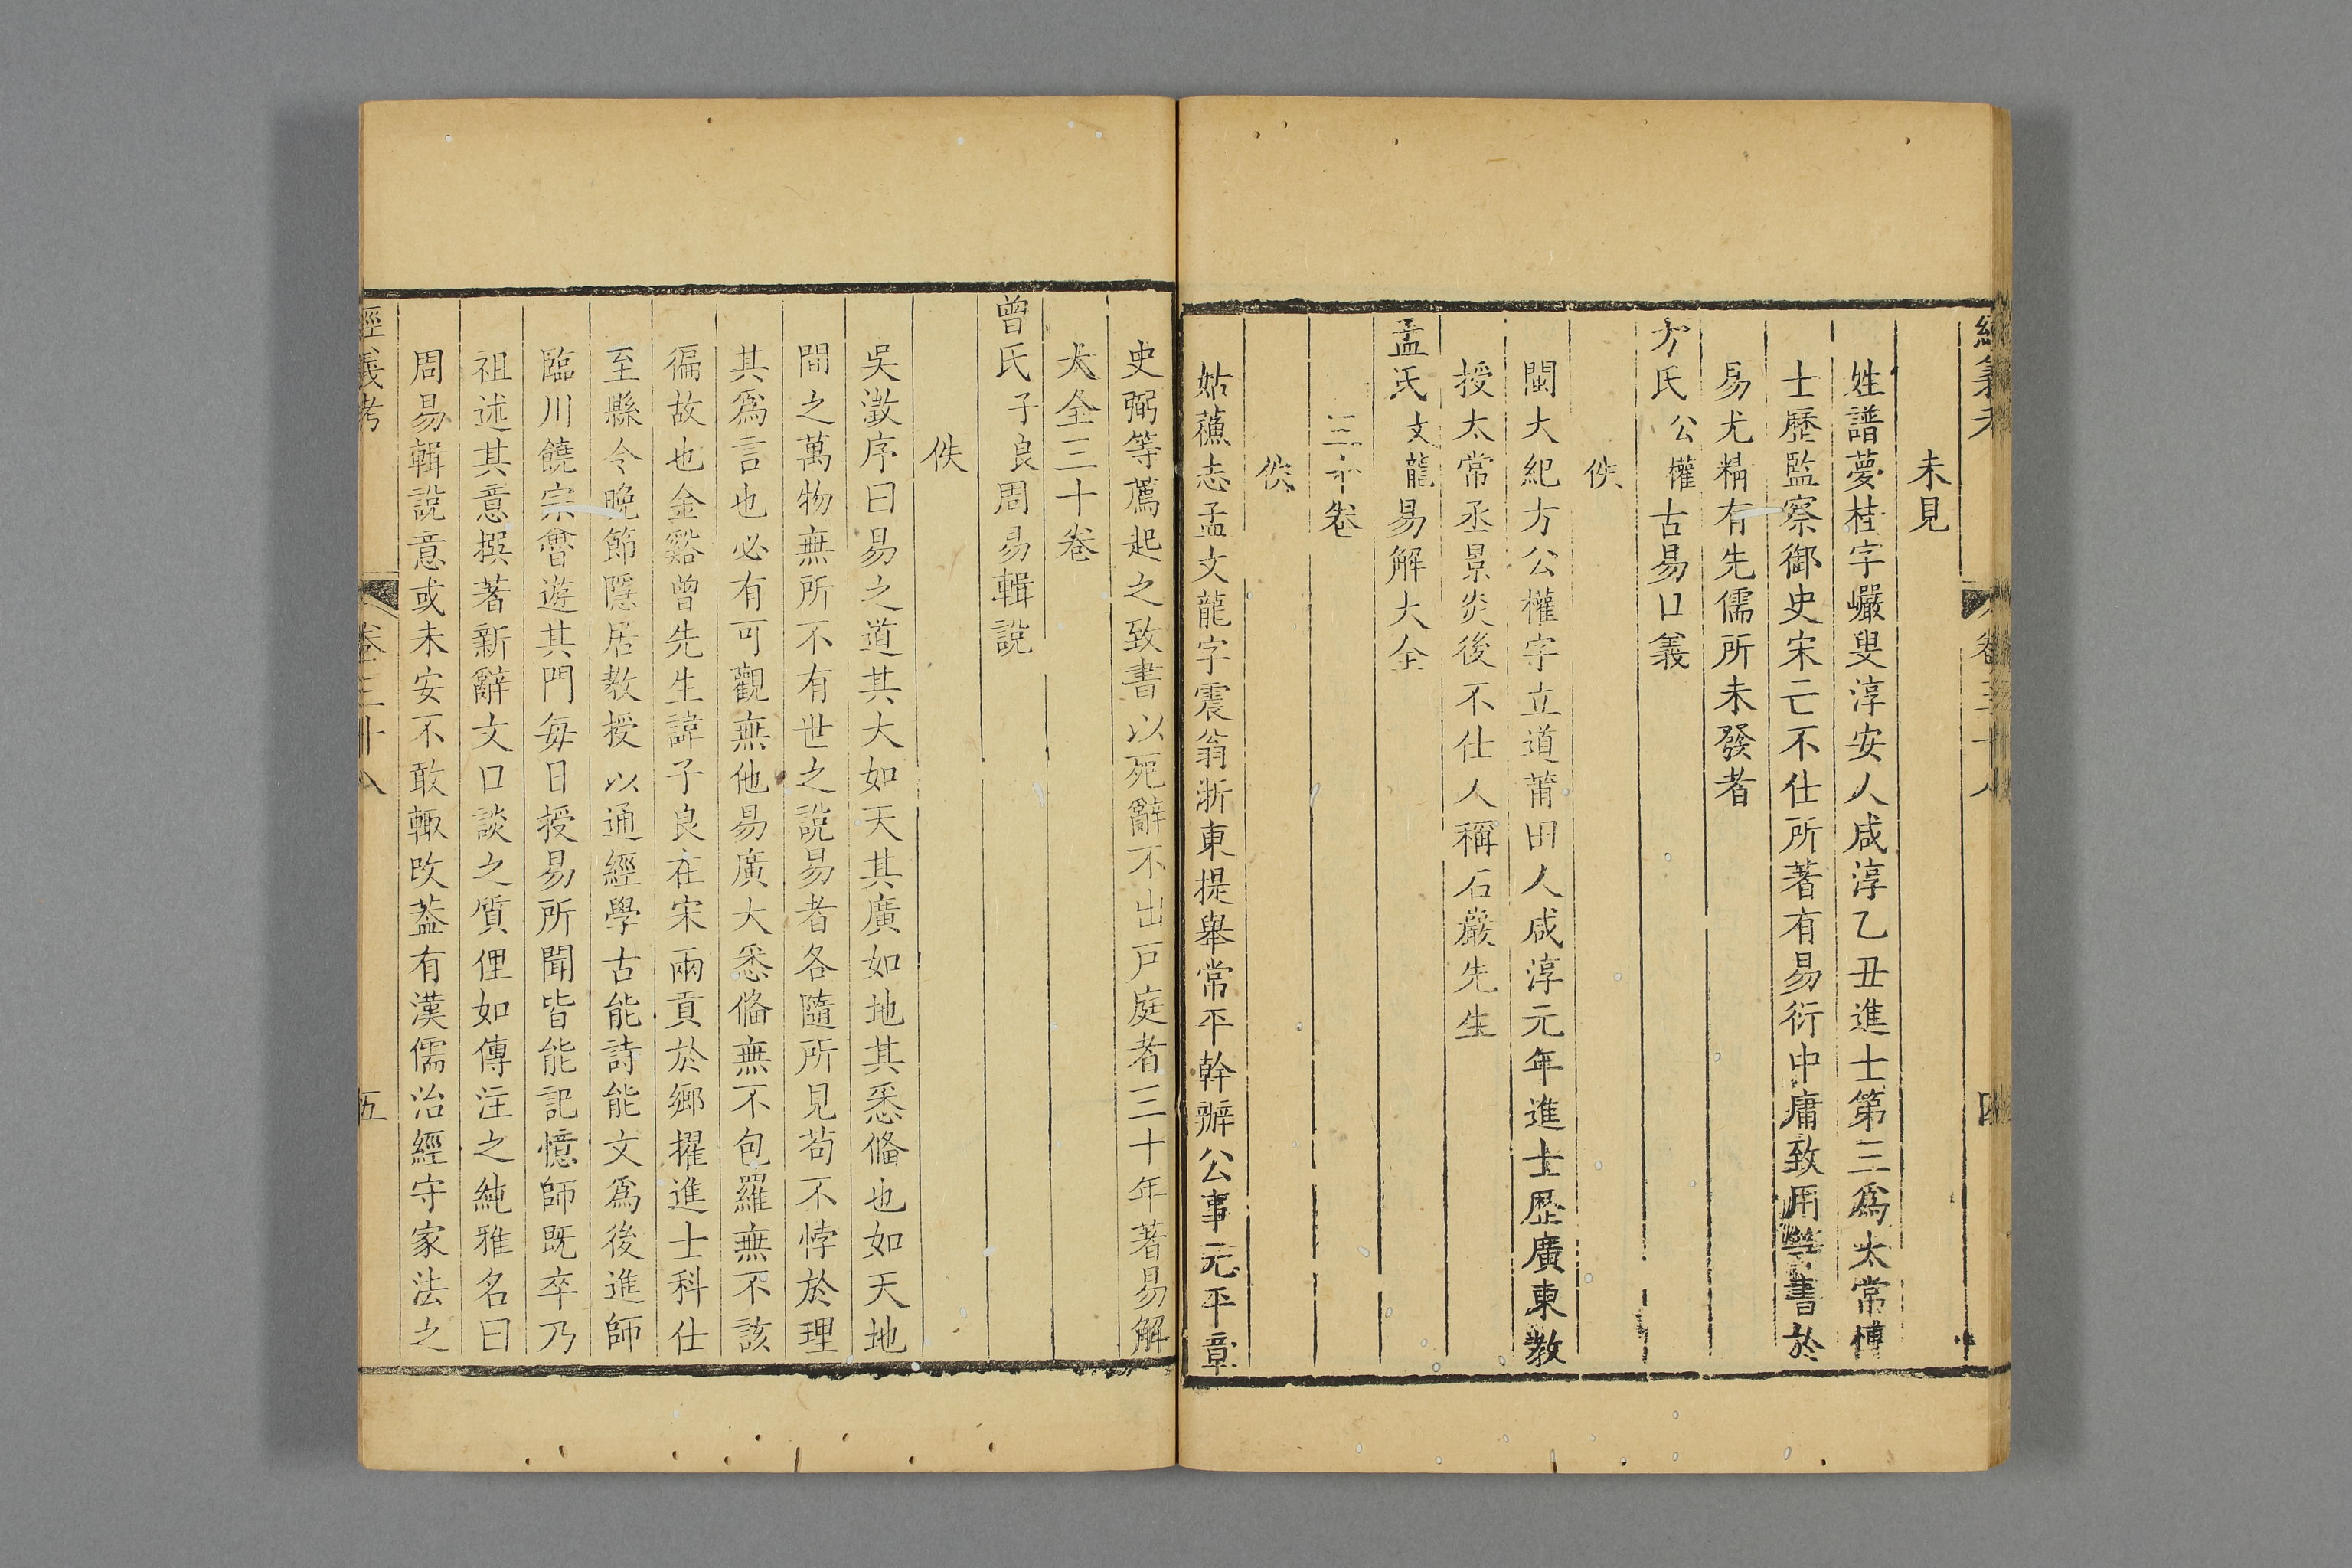 未見
姓譜夢桂字巖叟淳安人咸淳乙丑進士第三爲太常博
士歷監察御史宋亡不仕所著有易衍中庸致用等書於
易尤精有先儒所未發者
方氏公權古易口義
佚
閩大紀方公權字立道莆田人咸淳元年進士歷廣東教
授太常丞景炎後不仕人稱石巖先生
孟氏文龍易解大全
三十卷
佚
姑蘓志孟文龍字震翁浙東提舉常平幹辦公事元平章
史弼等薦起之致書以死辭不出戸庭者三十年著易解
大全三十卷
曾氏子良周易輯說
佚
吳澂序曰易之道其大如天其廣如地其悉備也如天地
間之萬物無所不有世之說易者各隨所見苟不悖於理
其爲言也必有可觀無他易廣大悉備無不包羅無不該
徧故也金谿曾先生諱子良在宋兩貢於鄉擢進士科仕
至縣令晚節隱居教授以通經學古能詩能文爲後進師
臨川饒宗魯遊其門每日授易所聞皆能記憶師既卒乃
祖述其意撰著新辭文口談之質俚如傳注之純雅名曰
周易輯說意或未安不敢輒改葢有漢儒治經守家法之
經義考 卷三十八 五